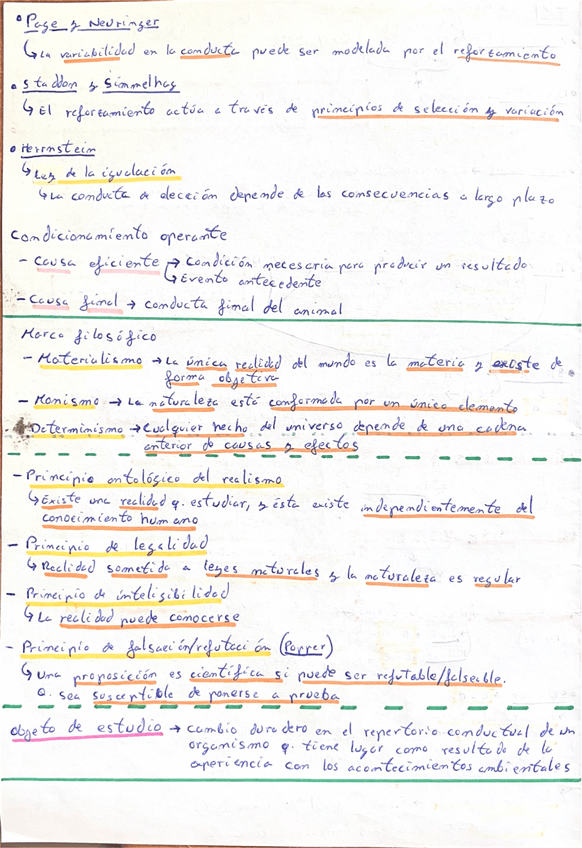 • Page y Neuringer
↳ La variabilidad en la conducta puede ser modelada por el reforzamiento
• Staddon y Simmelhag
↳ El reforzamiento actúa a través de principios de selección y variación
• Herrnstein
↳ Ley de la igualación
↳ La conducta de elección depende de las consecuencias a largo plazo
Condicionamiento operante
- Causa eficiente → Condición necesaria para producir un resultado
↳ Evento antecedente
- Causa final → conducta final del animal
Marco filosófico
- Materialismo → La única realidad del mundo es la materia y existe de
forma objetiva
- Monismo → La naturaleza está conformada por un único elemento
- Determinismo → Cualquier hecho del universo depende de una cadena
anterior de causas y efectos
- Principio ontológico del realismo
↳ Existe una realidad q. estudiar, y ésta existe independientemente del
conocimiento humano
- Principio de legalidad
↳ Realidad sometida a leyes naturales y la naturaleza es regular
- Principio de inteligibilidad
↳ La realidad puede conocerse
- Principio de falsación/refutación (Popper)
↳ Una proposición es científica si puede ser refutable/falseable.
Q. sea susceptible de ponerse a prueba
Objeto de estudio → cambio duradero en el repertorio conductual de un
organismo q. tiene lugar como resultado de la
experiencia con los acontecimientos ambientales